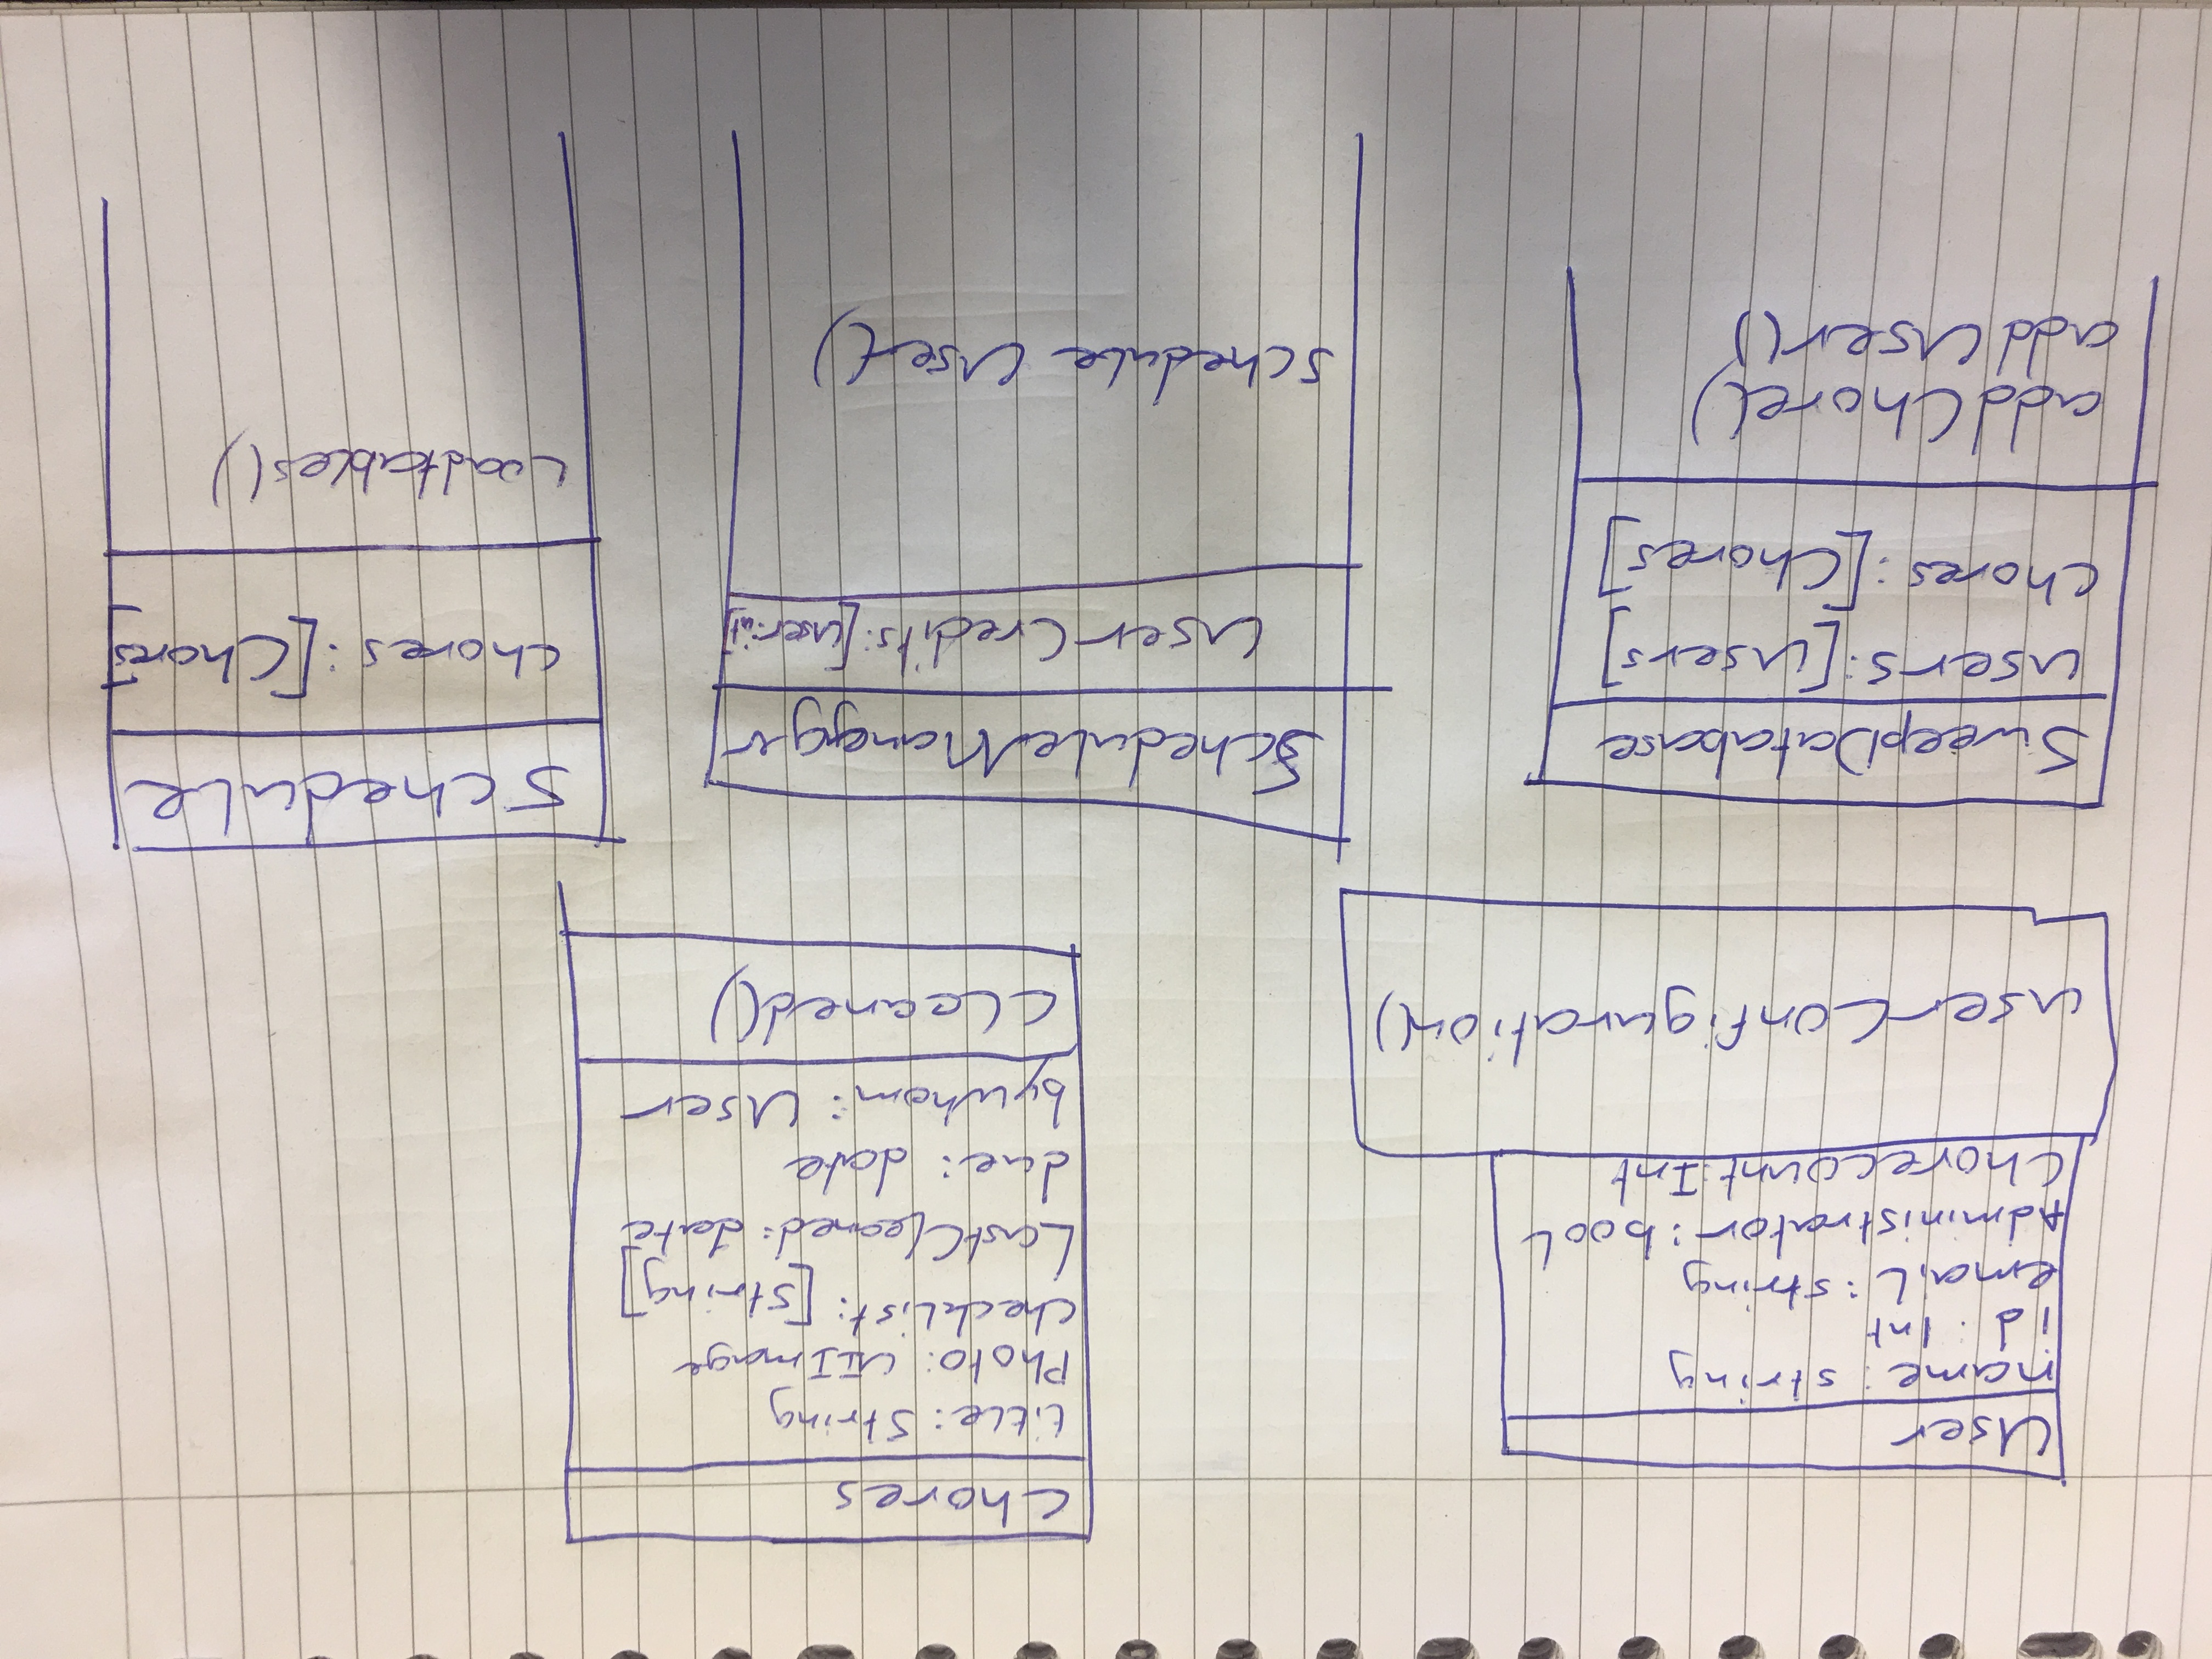 User
name: string
id: Int
email: string
Administrator: bool
Chorecount: Int
userConfiguration()
Chores
title: String
Photo: UIImage
checkList: [String]
LastCleaned: date
due: date
bywhom: User
cleaned()
SweepDatabase
users: [Users]
chores: [Chores]
addChore()
addUser()
ScheduleManager
userCredits: [User:int]
schedule User()
Schedule
chores: [Chores]
Loadtables()